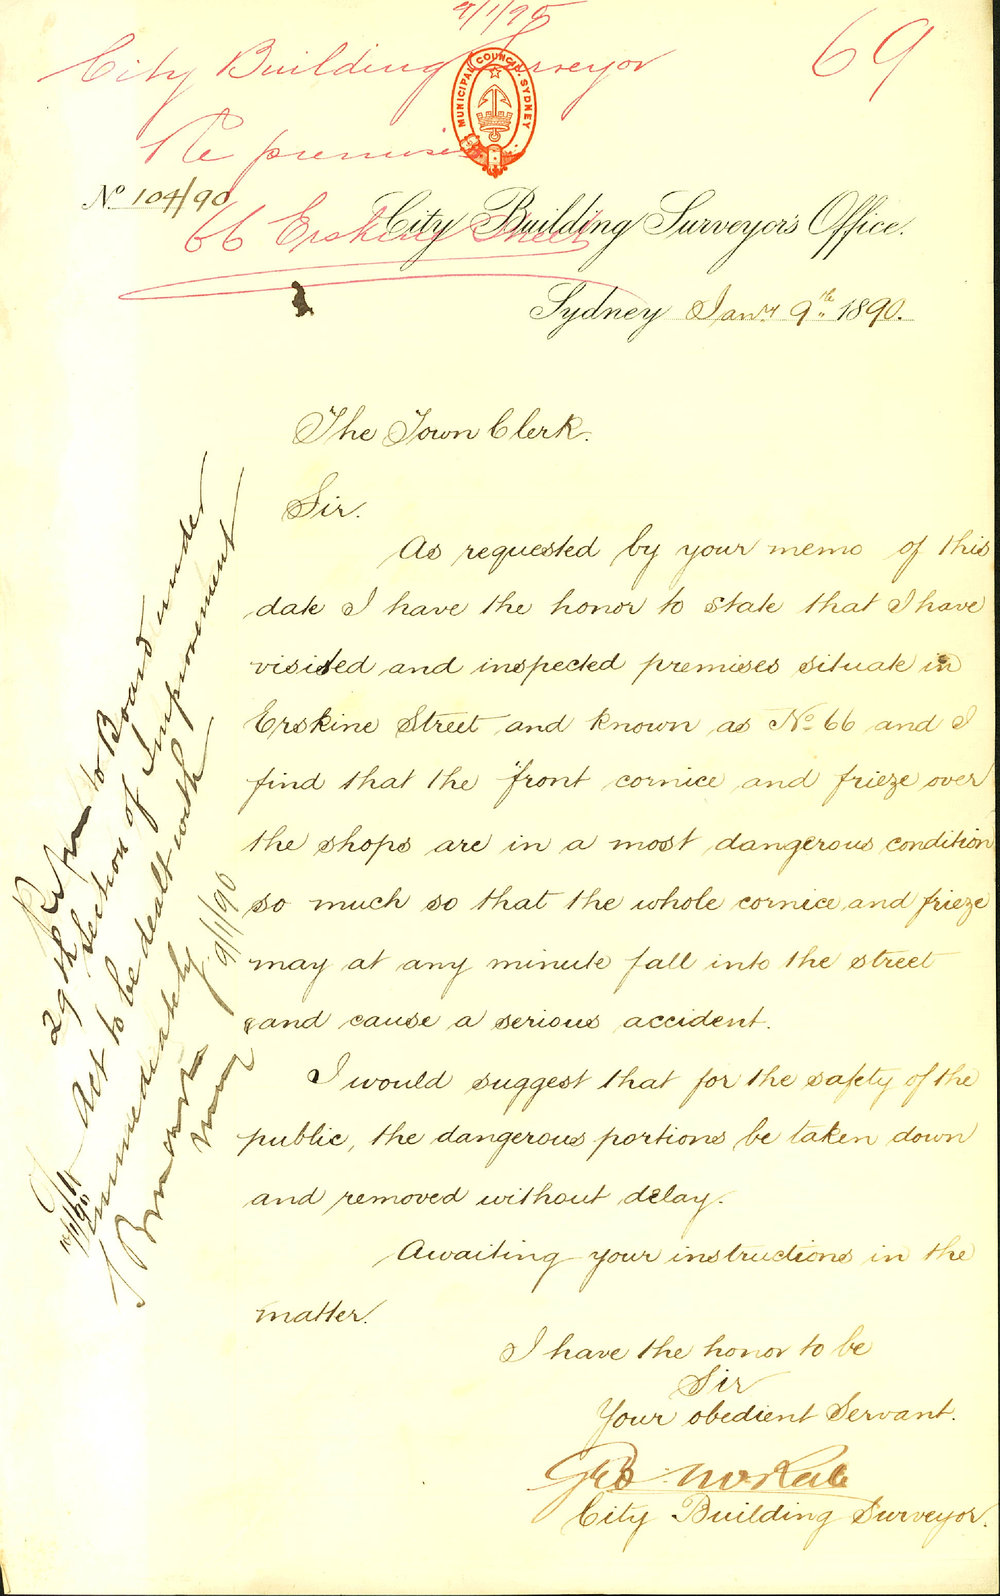 9/1/90
City Building Surveyor
69
Re premises
66 Erskine Street
MUNICIPAL COUNCIL SYDNEY
No 104/90
City Building Surveyor's Office.
Sydney Jany 9th 1890.
The Town Clerk.
Sir.
As requested by your memo of this
date I have the honor to state that I have
visited and inspected premises situate in
Erskine Street and known as No 66 and I
find that the front cornice and frieze over
the shops are in a most dangerous condition
so much so that the whole cornice and frieze
may at any minute fall into the street
and cause a serious accident.
I would suggest that for the safety of the
public, the dangerous portions be taken down
and removed without delay.
Awaiting your instructions in the
matter.
I have the honor to be
Sir
Your obedient Servant.
Geo McRae
City Building Surveyor.
Refer to Board under
29th Section of Improvement
Act to be dealt with
immediately
9/1/90
Mayor